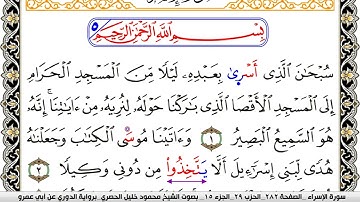 بِسْمِ اللَّهِ الرَّحْمَٰنِ الرَّحِيمِ ٥
سُبْحَٰنَ الَّذِي أَسْرِىٰ بِعَبْدِهِۦ لَيْلًا مِّنَ الْمَسْجِدِ الْحَرَامِ
إِلَى الْمَسْجِدِ الْأَقْصَا الَّذِي بَٰرَكْنَا حَوْلَهُۥ لِنُرِيَهُۥ مِنْ ءَايَٰتِنَا إِنَّهُۥ
هُوَ السَّمِيعُ الْبَصِيرُ ١ وَءَاتَيْنَا مُوسَى الْكِتَٰبَ وَجَعَلْنَٰهُ
هُدًى لِّبَنِي إِسْرَٰٓءِيلَ أَلَّا يَتَّخِذُوا مِن دُونِي وَكِيلًا ٢
سورة الإسراء . الصفحة ٢٨٢ . الحزب ٢٩ . الجزء ١٥ بصوت الشيخ محمود خليل الحصري . برواية الدوري عن أبي عمرو